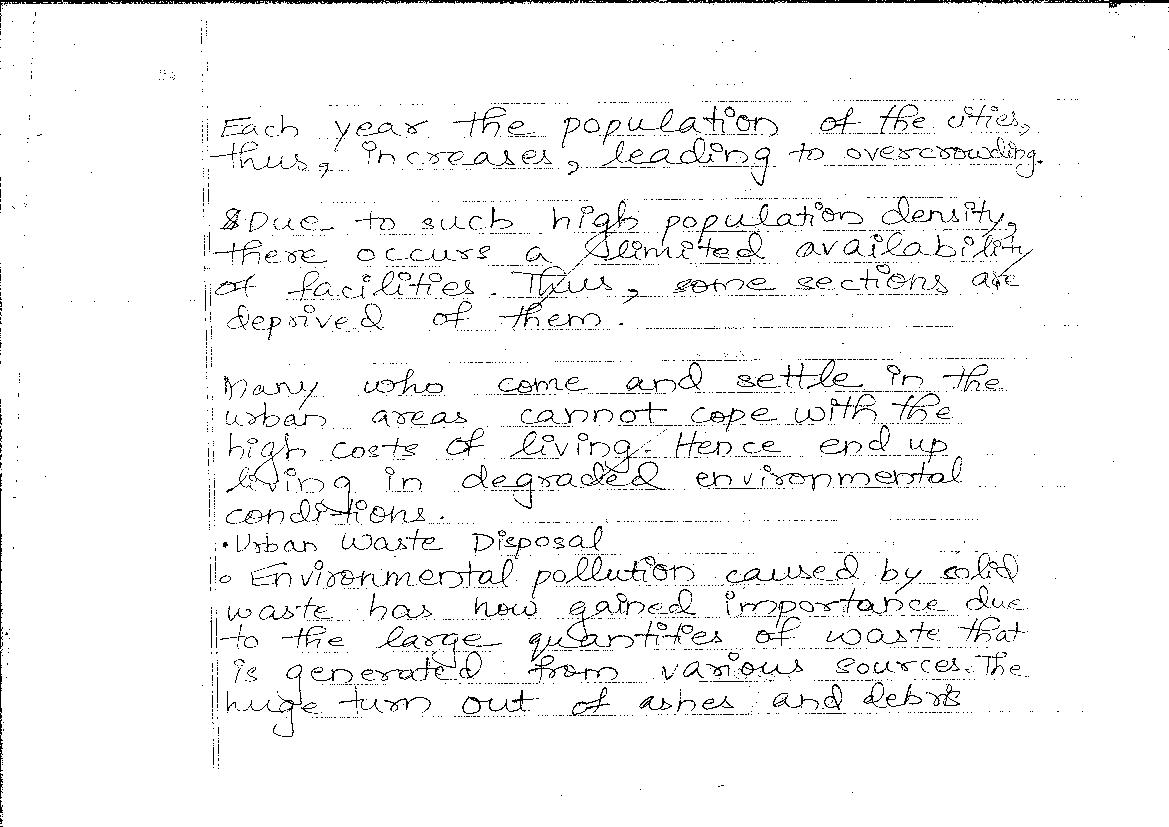 Each year the population of the cities,
thus, increases, leading to overcrowding.
Due to such high population density,
there occurs a limited availability
of facilities. Thus, some sections are
deprived of them.
Many who come and settle in the
urban areas cannot cope with the
high costs of living. Hence end up
living in degraded environmental
conditions.
• Urban Waste Disposal
o Environmental pollution caused by solid
waste has now gained importance due
to the large quantities of waste that
is generated from various sources. The
huge turn out of ashes and debris